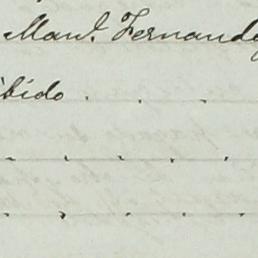 Manl. Fernandez
ibido . . .